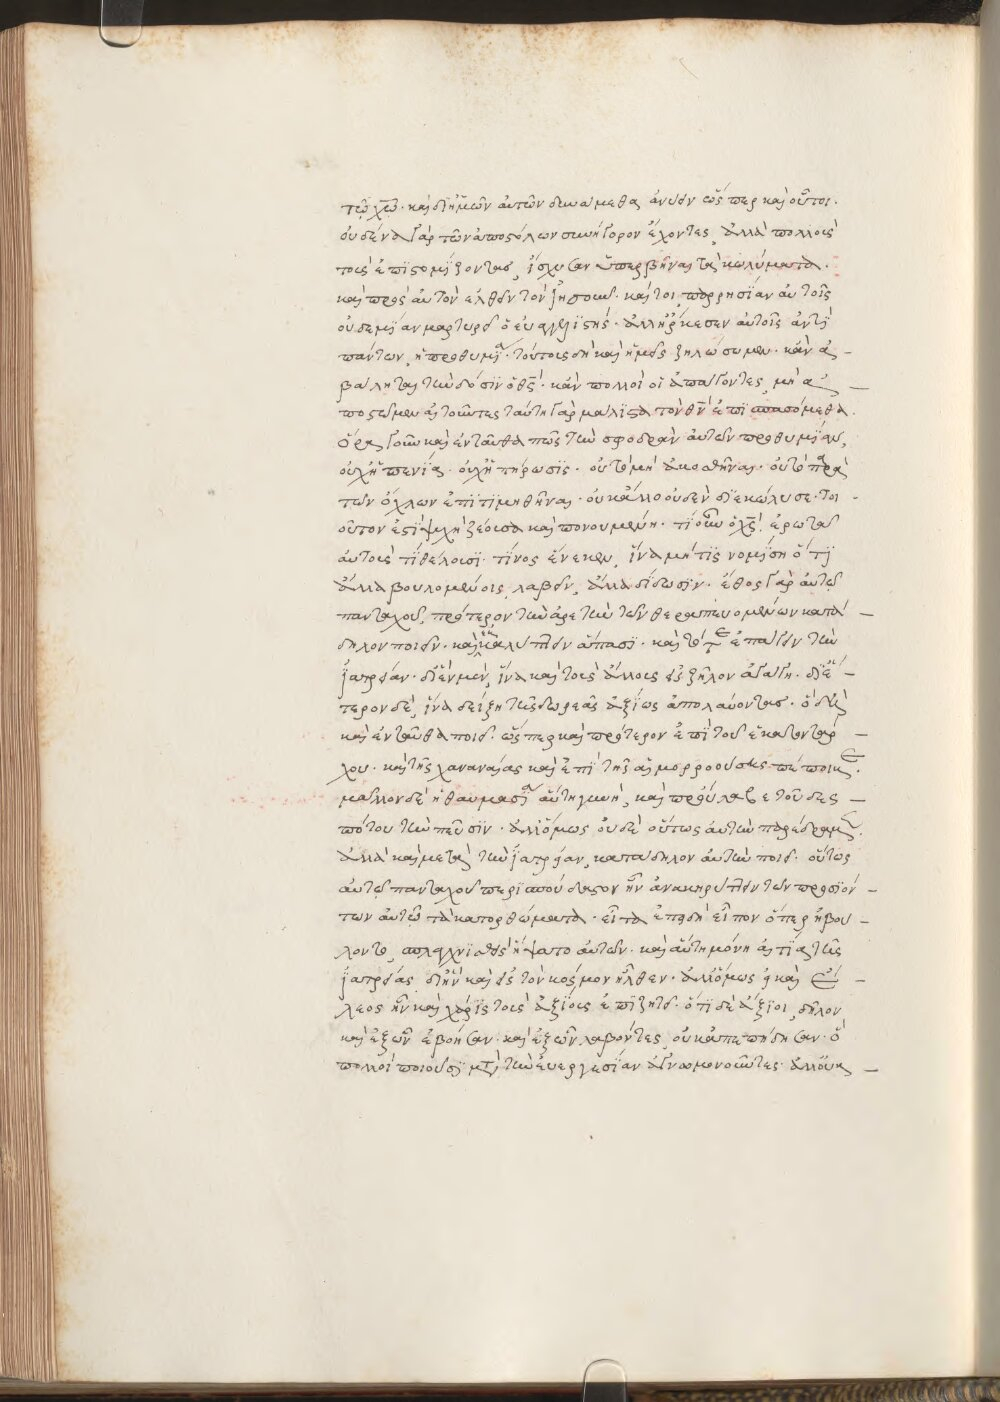 τῷ χῷ· καὶ δι' ἡμῶν αὐτῶν δυνάμεθα ἀνύειν ὥσπερ καὶ οὗτοι·
οὐδένα γὰρ τῶν ἀποστόλων συνήγορον ἔχοντες, ἀλλὰ πολλοὺς
τοὺς ἐπιστομίζοντας, ἴσχυσαν ὑπερβῆναι τὰ κωλύματα·
καὶ πρὸς αὐτὸν ἐλθεῖν τὸν ἰησοῦν· καίτοι παρρησίαν αὐτοῖς
οὐδεμίαν μαρτυρεῖ ὁ εὐαγγελιστής· ἀλλ' ἤρκεσεν αὐτοῖς ἀντὶ
πάντων, ἡ προθυμία· τούτους δὴ καὶ ἡμεῖς ζηλώσωμεν· κἂν ἀ –
βάληται τὴν δόσιν ὁ θς· κἂν πολλοὶ οἱ ἀπάγοντες, μὴ ἀ –
ποστῶμεν αἰτοῦντες ταύτῃ γὰρ μάλιστα τὸν θν ἐπισπασόμεθα·
ὅρα γοῦν καὶ ἐνταῦθα πῶς τὴν σφοδρὰν αὐτῶν προθυμίαν,
οὐχ ἡ πενία· οὐχ ἡ πήρωσις· οὐ τὸ μὴ ἀκουσθῆναι· οὐ τὸ παρὰ
τῶν ὄχλων ἐπιτιμηθῆναι· οὐκ ἄλλο οὐδὲν διεκώλυσε· τοι –
οῦτον ἐστὶ ψυχὴ ζέουσα καὶ πονουμένη· τί οὖν ὁ χς; ἐρωτᾷ
αὐτοὺς τί θέλουσι· τίνος ἕνεκεν, ἵνα μή τις νομίσῃ ὅτι
ἄλλα βουλομένοις λαβεῖν, ἄλλα δίδωσιν· ἔθος γὰρ αὐτῷ
πανταχοῦ, πρότερον τὴν ἀρετὴν τῶν θεραπευομένων κατά –
δηλον ποιεῖν· καὶ ἐκκαλύπτειν ἅπασι· καὶ τότε ἐπάγειν τὴν
ἰατρείαν· δι' ἓν μὲν, ἵνα καὶ τοὺς ἄλλους εἰς ζῆλον ἀγάγῃ· δι' ἕ –
τερον δὲ, ἵνα δείξῃ τῆς δωρεᾶς ἀξίως ἀπολαύοντας· ὃ δὴ
καὶ ἐνταῦθα ποιεῖ· ὥσπερ καὶ πρότερον ἐπὶ τοῦ ἑκατοντάρ –
χου· καὶ τῆς χαναναίας καὶ ἐπὶ τῆς αἱμορροούσης πεποίηκε·
μᾶλλον δὲ ἡ θαυμασία αὕτη γυνὴ, καὶ προύλαβε τοῦ δεσ –
πότου τὴν πεῦσιν· ἀλλ' ὅμως οὐδὲ οὕτως αὐτὴν παρέδραμε·
ἀλλὰ καὶ μετὰ τὴν ἰατρείαν, κατάδηλον αὐτὴν ποιεῖ· οὕτως
αὐτῷ πανταχοῦ περισπούδαστον ἦν ἀνακηρύττειν τῶν προσιόν –
των αὐτῷ τὰ κατορθώματα· εἶτα ἐπειδὴ εἶπον ὅπερ ἠβού –
λοντο, σπλαγχνισθεὶς ἥψατο αὐτῶν· καὶ αὕτη μόνη αἰτία τῆς
ἰατρείας δι' ἣν καὶ εἰς τὸν κόσμον ἦλθεν· ἀλλ' ὅμως εἰ καὶ ἔ –
λεος ἦν καὶ χάρις τοὺς ἀξίους ἐπιζητεῖ· ὅτι δὲ ἄξιοι, δῆλον
καὶ ἐξ ὧν ἐβόησαν· καὶ ἐξ ὧν λαβόντες, οὐκ ἀπεπήδησαν· ὃ
πολλοὶ ποιοῦσι μετὰ τὴν εὐεργεσίαν ἀγνωμονοῦντες· ἀλλ' οὐκ –